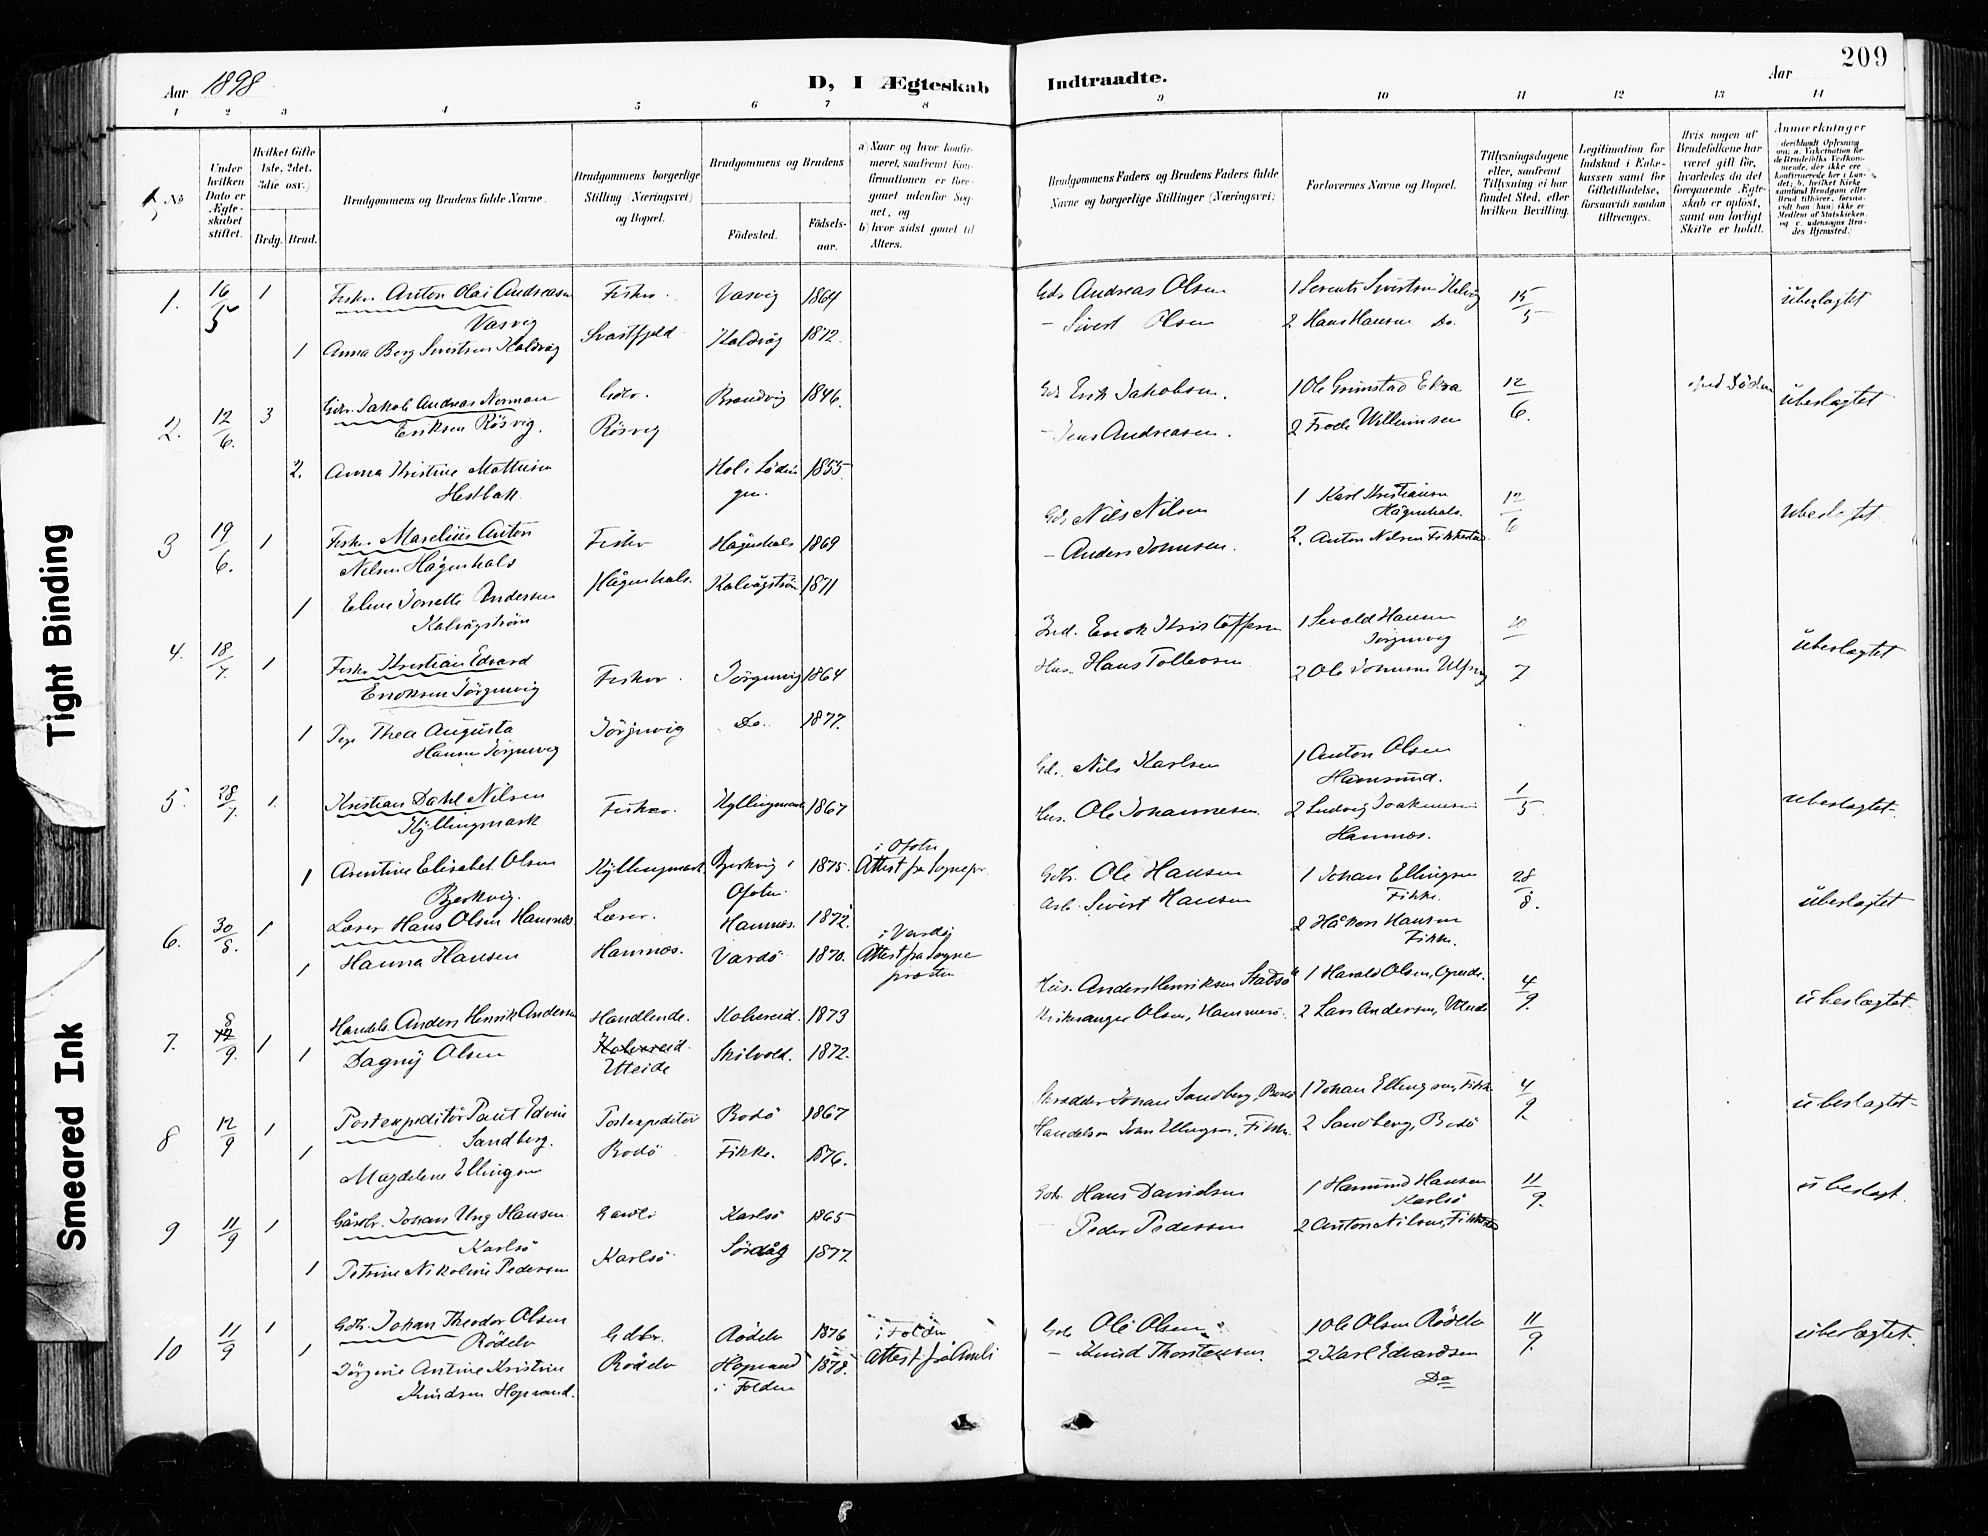 Aar 1898
D, I Ægteskab Indtraadte.
Aar
209
1 2 3 4 5 6 7 8 9 10 11 12 13 14
No
Under hvilken Dato er Ægteskabet stiftet.
Hvilket Gifte 1ste, 2det, 3die osv.)
Brdg. Brud.
Brudgommens og Brudens fulde Navne.
Brudgommens borgerlige Stilling (Næringsvei) og Bopæl.
Brudgommens og Brudens
Fødested.
Fødselsaar.
a) Naar og hvor konfirmeret, saafremt Konfirmationen er foregaaet udenfor Sognet, og
b) hvor sidst gaaet til Alters.
Brudgommens Faders og Brudens Faders fulde Navne og borgerlige Stillinger (Næringsvei)
Forlovernes Navne og Bopæl.
Tillysningsdagene eller, saafremt Tillysning ei har fundet Sted, efter hvilken Bevilling.
Legitimation for Indskud i Enkekassen samt for Giftetilladelse, forsaavidt saadan tiltrænges.
Hvis nogen af Brudefolkene har været gift før, hvorledes da det foregaaende Ægteskab er opløst, samt om lovligt Skifte er holdt.
Anmærkninger deriblandt Oplysning om: a. Vakcination for de Brudefolks Vedkommende, der ikke ere konfirmerede her i Landet; b. hvilket Kirkesamfund Brudgom eller Brud tilhører, forsaavidt han (hun) ikke er Medlem af Statskirken, og c. udensogns Brudes Hjemsted.)
1. 16/5 1 Fisker Anton Olai Andreasen Vasvig Fisker. Vasvig 1864 Gdr Andreas Olsen 1 Sivertsen 15/5 übeslægtet
1 Anna Berg Sivertsen Svartfjeld 1872. - Sivert Olsen 2 Hans Hansen Do.
2. 12/6. 3 Gdr. Jakob Andreas Norman Eriksen Rösvig. Gdbr. Rösvig Brandvig 1846. Gdr Erik Jakobsen. 1 Ole Grimstad 12/6. ved Döden übeslægtet
2. Anna Kristine Mathisen Hestbak Hol i Lödingen. 1855. - Jens Andreasen. 2 Willumsen
3 19/6. 1 Fisker Marelius Anton Nilsen Hågenhals Fisker Hågenhals 1869 Gdr Nils Nilsen 1 Karl Kristiansen Hågenhals. 12/6
1 Andersen Kalvågström Hågenhals. Kalvågström 1871 - Anders Johnsen. 2. Anton Nilsen
4. 18/7. 1 Fisker Kristian Edvard Enoksen Jörgenvig Fisker. Jörgenvig 1864 Ind. Enok Kristoffersen 1 Sevald Hansen Jörgenvig 7 übeslægtet
1 Pige Thea Augusta Hansen Jörgenvig Jörgenvig Do. 1877. Hus. Hans Tollevsen 2 Ole Johnsen
5. 28/7. 1. Kristian Dahl Nilsen Kyllingmark Fisker. Kyllingmark 1867 Gd. Nils Karlsen 1 Anton Olsen Hamsund. 1/5 übeslægtet.
1 Arentine Elisabet Olsen Bjerkvig. Kyllingmark. Bjerkvig i Ofoten. 1875. i Ofoten Attest fra Sognepr. Hus. Ole Johannesen 2 Ludvig Joakimsen Hamnes.
6. 30/8. 1 Lærer Hans Olsen Hamnes. Lærer. Hamnes. 1872. Gdbr. Ole Hansen 1 Johan Ellingsen Fikke. 28/8. übeslægtet
1 Hanna Hansen Hamnes. Vardö 1870. i Vardö Attest fra Sogneprosten Arb. Sivert Hansen 2 Håkon Hansen Fikke.
7. 8/9. 1 Handels. Anders Henrik Andersen Handlende. Kalvereid. 1873 Hus. Anders Henriksen 1 Harald Olsen, 4/9. übeslægtet.
1 Dagny Olsen Kolvereid. Uteide 1872. Olsen, Hammerö. 2 Lars Andersen, Uteide
8 12/9 1 Postexpeditör Paul Edvin Sandberg. Postexpeditör Bodö 1867 Skrædder Johan Sandberg, Bodö 1 Johan Ellingsen, Fikke 4/9. übeslægtet.
1 Magdelene Ellingsen Bodö Fikke. 1876. Handelsm John Ellingsen, Fikke. 2 Sandberg, Bodö
9 11/9 1 Gårdbr. Johan Ung Hansen Karlsö Gårdbr Karlsö 1865 Gdr. Hans Davidsen 1 Hamund Hansen Karlsö 11/9. übeslægt.
1 Petrine Nikoline Pedersen Karlsö Sördåg 1877. Peder Pedersen 2 Anton Nilsen,
10 11/9 1 Gdbr. Johan Theodor Olsen Rödelv Gdbr. Rödelv 1876 i Folden Gdr Ole Olsen 1 Ole Olsen Rödelv 11/9. übeslægtet.
1 Jörgine Antine Kristine Knudsen Hopvand. Rödelv Hopvand i Folden 1878. Attest fra - Knud Thorstensen. 2 Karl Edvardsen Do
Tight Binding
Smeared Ink